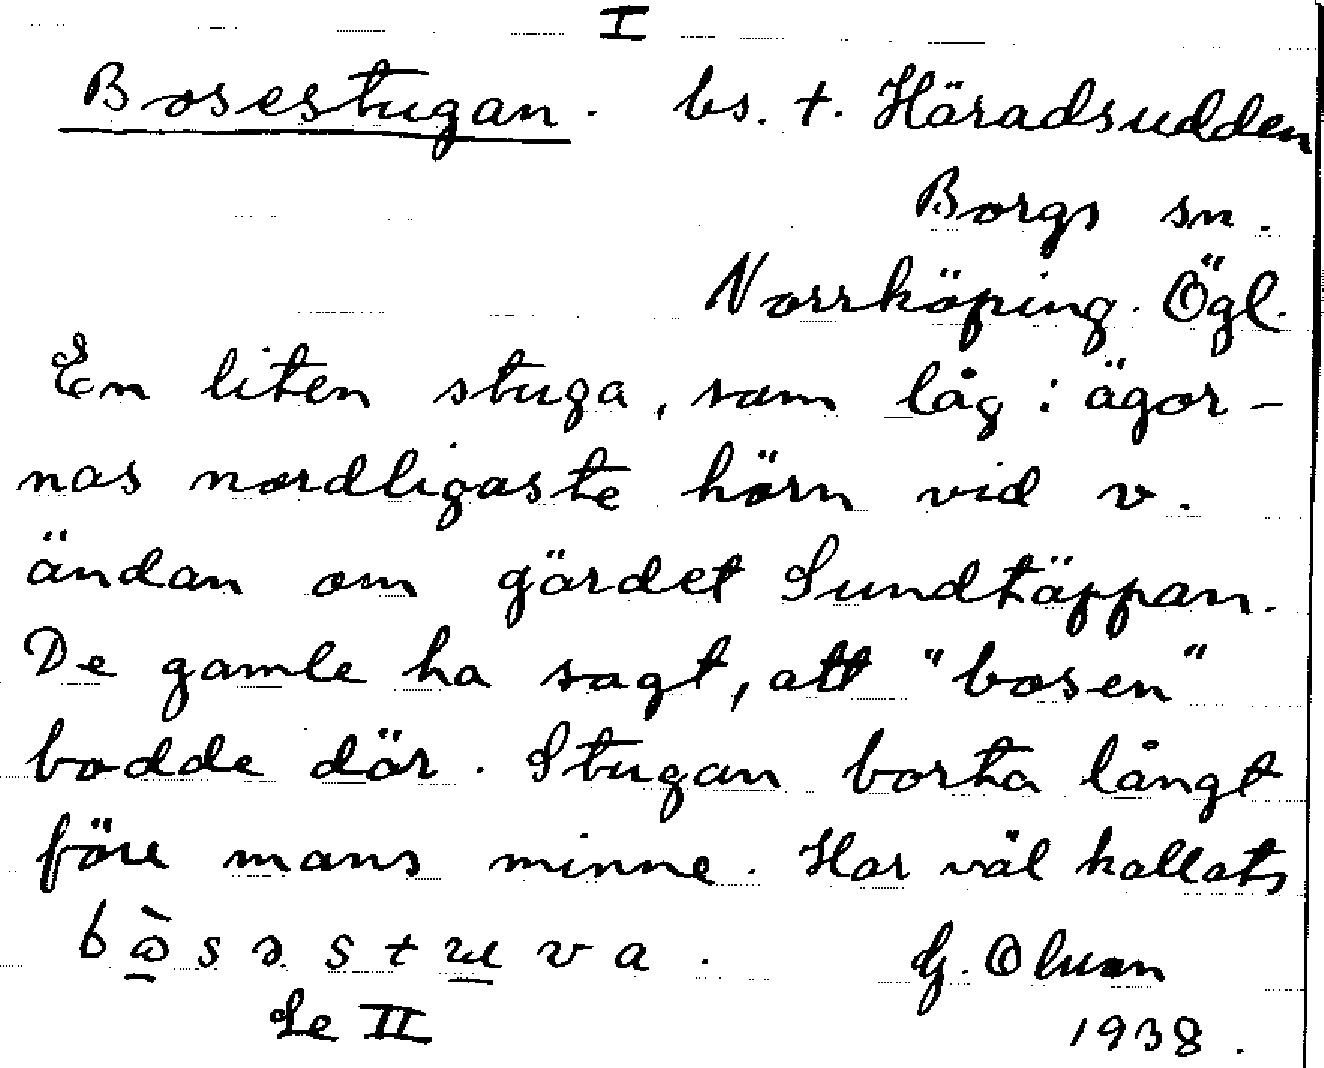 I
Bosestugan. bs. t. Häradsudden
Borgs sn.
Norrköping. Ögl.
En liten stuga, som låg i ägor-
nas nordligaste hörn vid v.
ändan om gärdet Sundtäppan.
De gamle ha sagt, att "bosen"
bodde där. Stugan borta långt
före mans minne. Har väl kallats
Se II
1938.